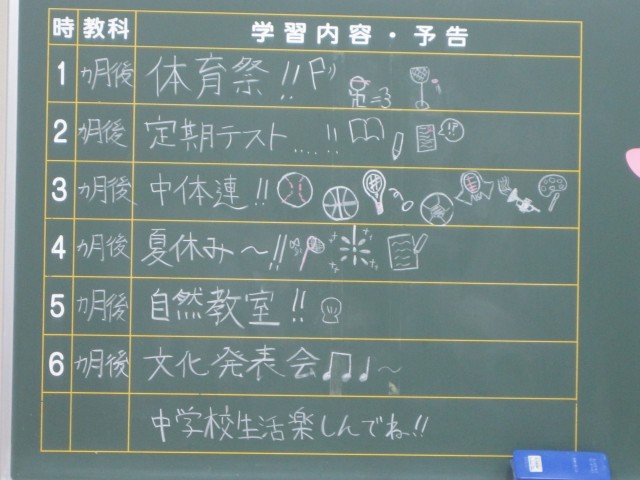 時 教科 学習内容・予告
1 ヵ月後 体育祭!!
2 ヵ月後 定期テスト....!!
3 ヵ月後 中体連!!
4 ヵ月後 夏休み〜!!
5 ヵ月後 自然教室!!
6 ヵ月後 文化発表会♫♩〜
中学校生活楽しんでね!!